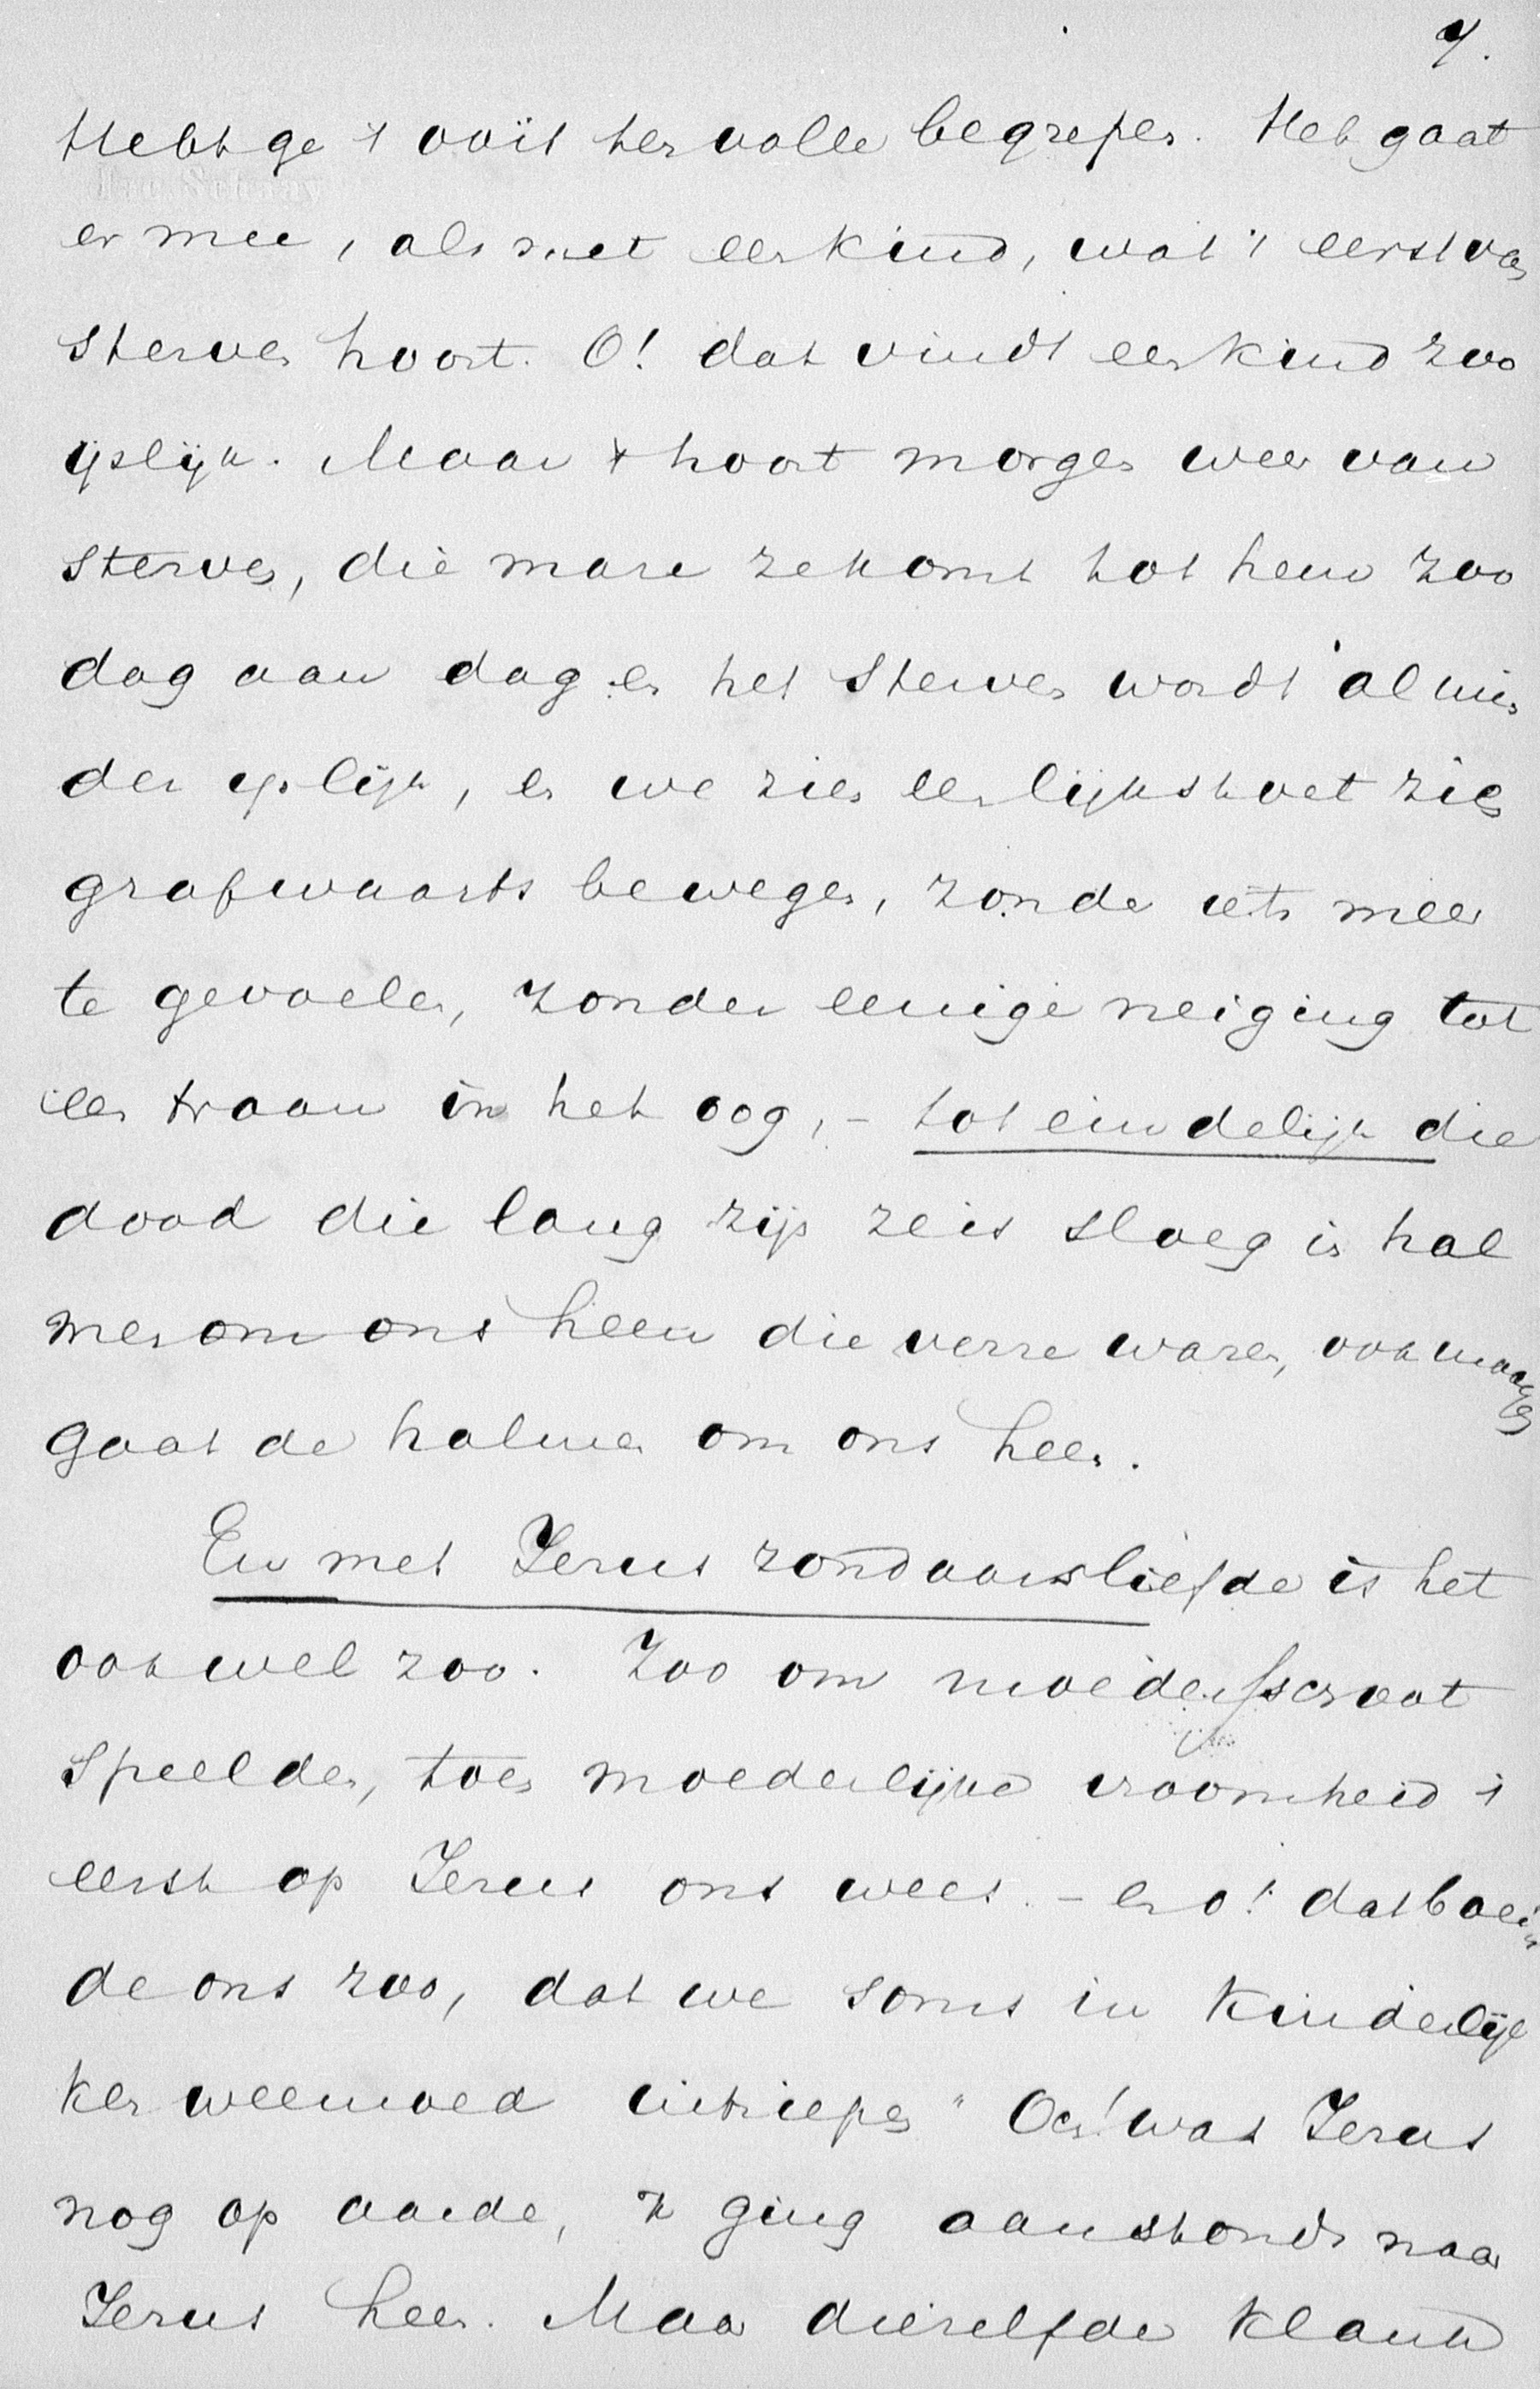 7.
Hebt ge 't ooit ten volle begrepen. Het gaat
er mee, als met een kind, wat 't eerst van
sterven hoort. O! dat vindt een kind zoo
ijslijk. Maar 't hoort morgen weer van
sterven, die mare ze komt tot hem zoo
dag aan dag en het sterven wordt al min
der ijslijk, en we zien een lijkstoet zich
grafwaarts bewegen, zonder iets meer
te gevoelen, zonder eenige neiging tot
een traan in het oog, - tot eindelijk die
dood die lang zijn zeis sloeg in hal
men om ons heen die verre waren, ook
gaat de halmen om ons heen.
En met Jezus zondaarsliefde is het
ook wel zoo. Zoo om moeders schoot
speelden, toen moederlijke vroomheid 't
eerst op Jezus ons wees. - en o! dat boei
de ons zoo, dat we soms in kinderlij
ken weemoed uitriepen "Och! was Jezus
nog op aarde, 'k ging aanstonds naar
Jezus heen. Maar diezelfde klank